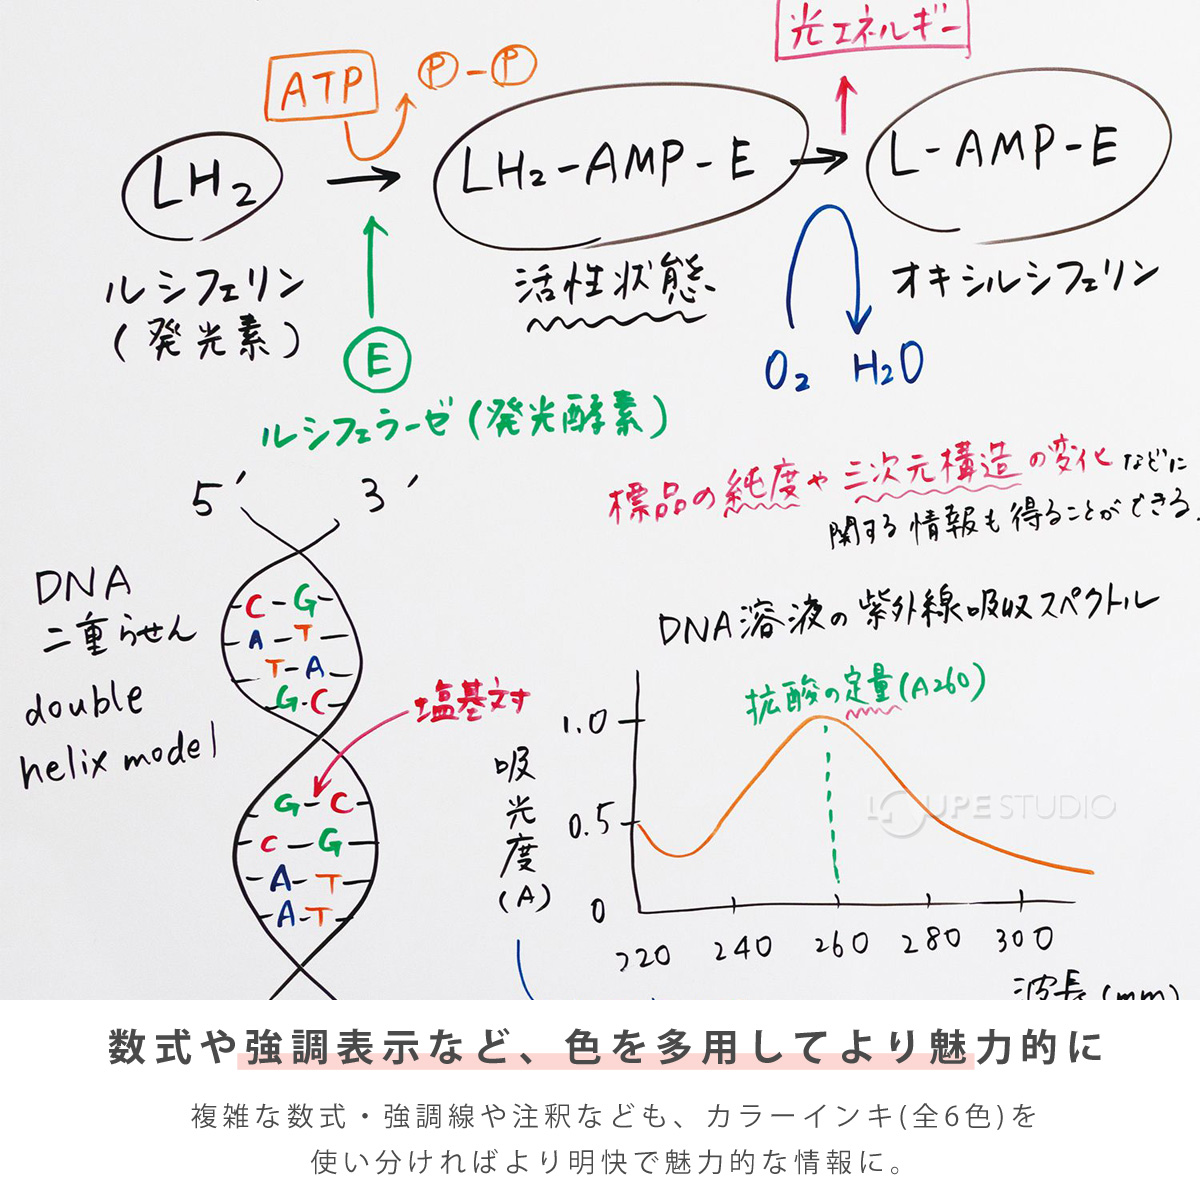 光エネルギー
ATP
P-P
LH₂
LH₂-AMP-E
L-AMP-E
ルシフェリン
(発光素)
活性状態
オキシルシフェリン
E
O₂ H₂O
ルシフェラーゼ(発光酵素)
標品の純度や三次元構造の変化などに
関する情報も得ることができる.
5′ 3′
DNA
二重らせん
double
helix model
C-G
A-T
T-A
G-C
塩基対
G-C
C-G
A-T
A-T
DNA溶液の紫外線吸収スペクトル
拡酸の定量(A260)
吸光度(A)
1.0
0.5
0
220 240 260 280 300
波長(mm)
LOUPE STUDIO
数式や強調表示など、色を多用してより魅力的に
複雑な数式・強調線や注釈なども、カラーインキ(全6色)を
使い分ければより明快で魅力的な情報に。